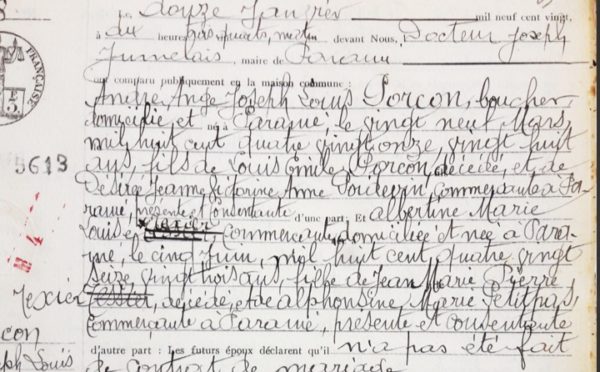 Le douze Janvier mil neuf cent vingt,
à dix heures
devant Nous, Docteur Joseph
Jumelais, maire de Paramé
ont comparu publiquement en la maison commune :
André Ange Joseph Louis Porcon, boucher,
domicilié et né à Paramé, le vingt neuf Mars,
mil huit cent quatre vingt onze, vingt huit
ans, fils de Louis Emile Porcon, décédé, et de
Désirée Jeanne Anne commerçante à Pa-
ramé, présente et consentante d'une part; Et Albertine Marie
Louise commerçante, domiciliée et née à Para-
mé, le cinq Juin, mil huit cent quatre vingt
seize, vingt trois ans, fille de Jean Marie Pierre
Texier, décédé, et de Alphonsine Marie Petitpas,
commerçante à Paramé, présente et consentante
d'autre part : Les futurs époux déclarent qu'il n'a pas été fait
de contrat de mariage
FRANÇAISE
5613
Texier
rcon
eph Louis